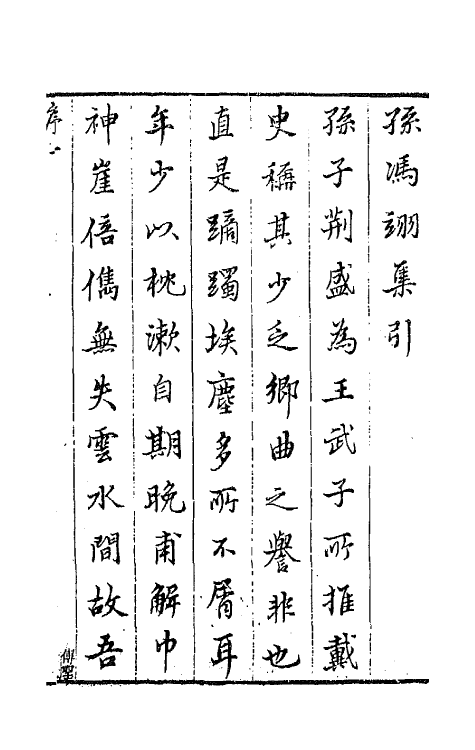 孫馮翊集引
孫子荆盛為王武子所推戴
史稱其少乏鄉曲之譽非也
直是躪躅埃塵多所不屑耳
年少以枕漱自期晚甫解巾
神崖倍儁無失雲水間故吾
序一